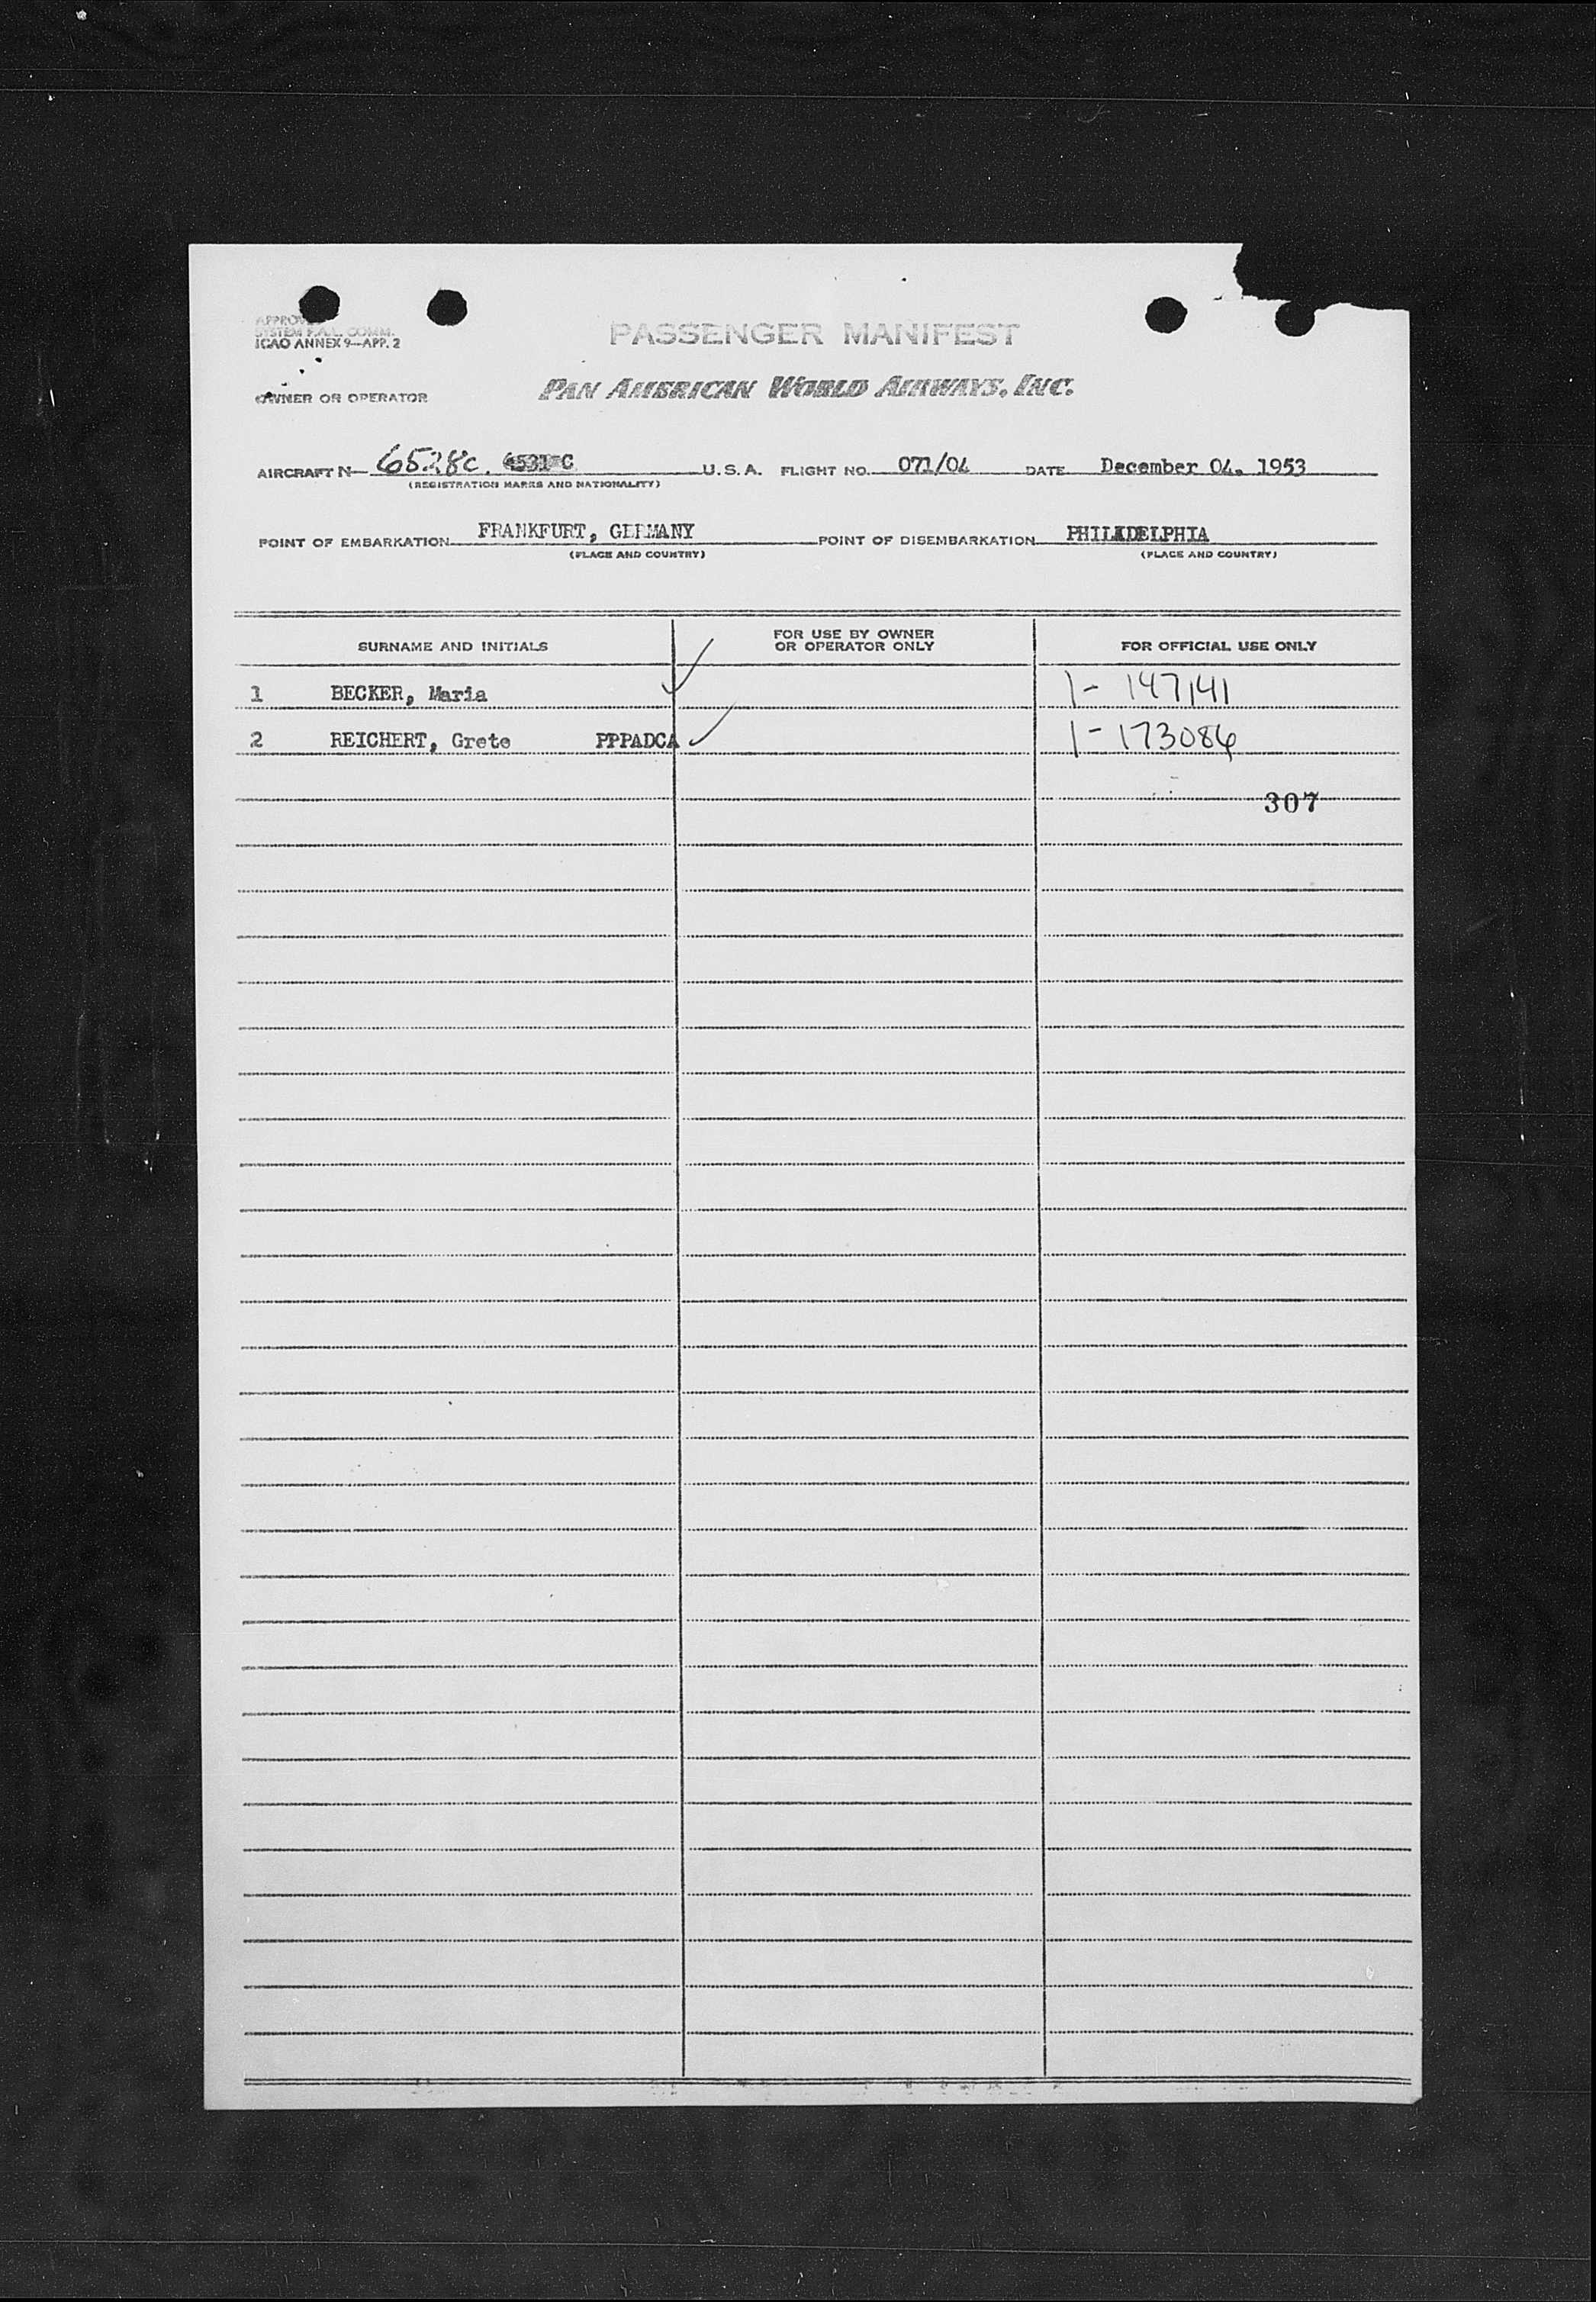 APPROVED
SYSTEM F.A.L. COMM.
ICAO ANNEX 9—APP. 2
PASSENGER MANIFEST
OWNER OR OPERATOR PAN AMERICAN WORLD AIRWAYS, INC.
AIRCRAFT N— 6528C. 6531 C U.S.A. FLIGHT NO. 071/04 DATE December 04. 1953
(REGISTRATION MARKS AND NATIONALITY)
POINT OF EMBARKATION FRANKFURT, GERMANY POINT OF DISEMBARKATION PHILADELPHIA
(PLACE AND COUNTRY) (PLACE AND COUNTRY)
SURNAME AND INITIALS FOR USE BY OWNER OR OPERATOR ONLY FOR OFFICIAL USE ONLY
1 BECKER, Maria 1- 147141
2 REICHERT, Grete PPPADCA 1-173086
307